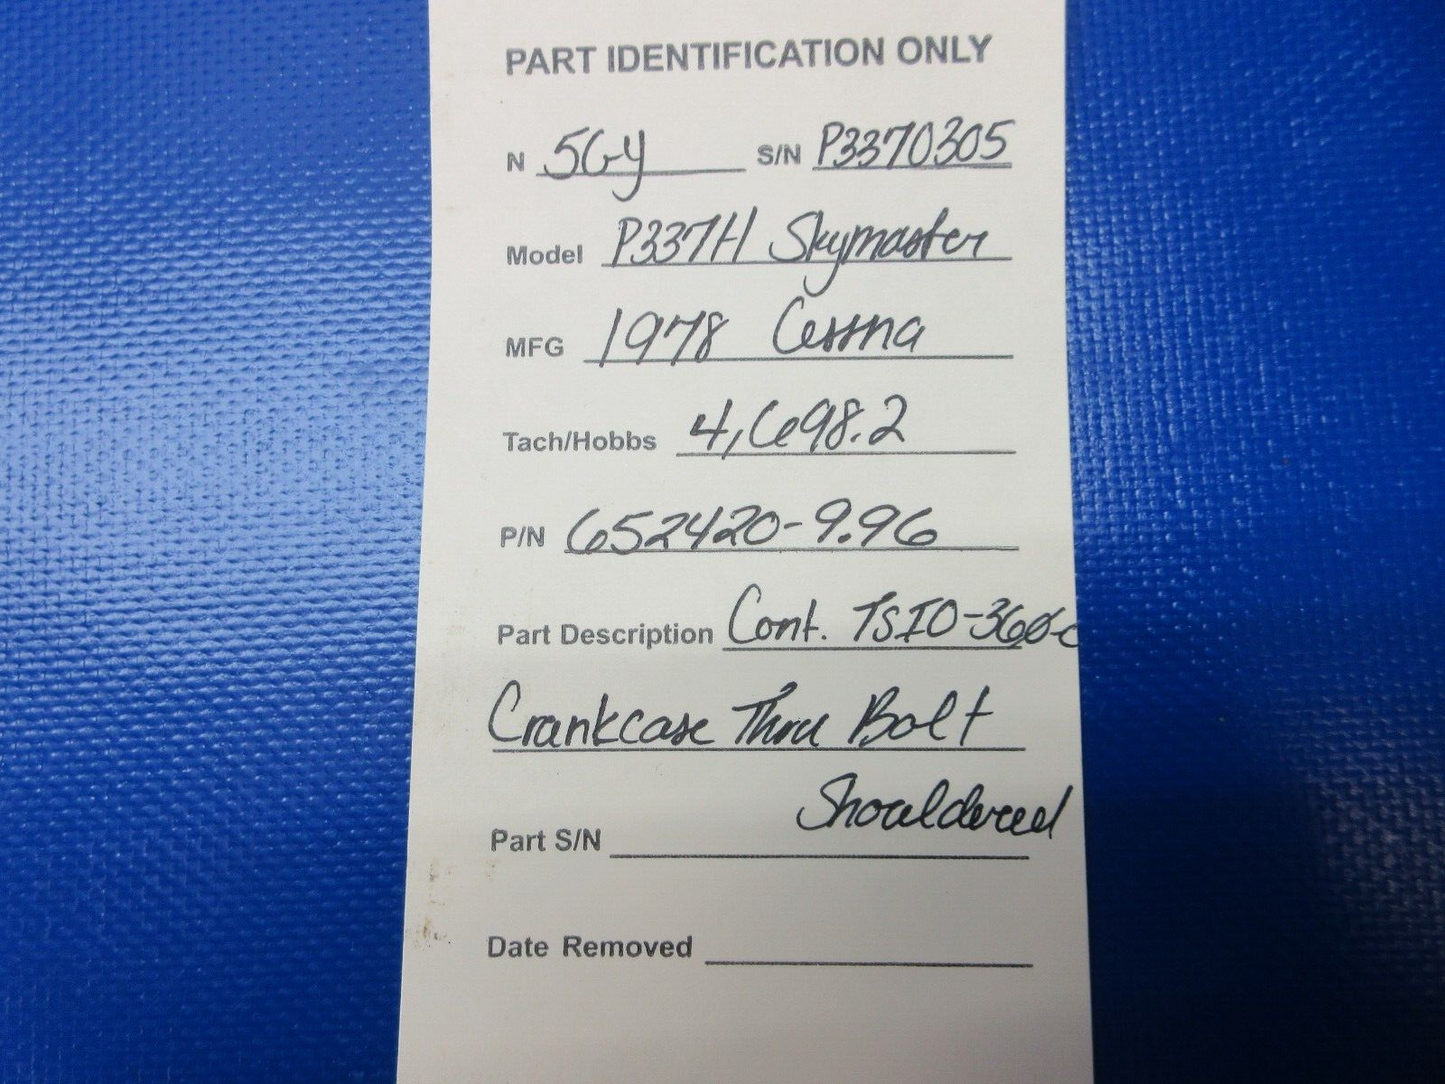 PART IDENTIFICATION ONLY
N 5GY S/N P3370305
Model P337H Skymaster
MFG 1978 Cessna
Tach/Hobbs 4,698.2
P/N 652420-9.96
Part Description Cont. TSIO-360-C
Crankcase Thru Bolt
Shouldered
Part S/N
Date Removed